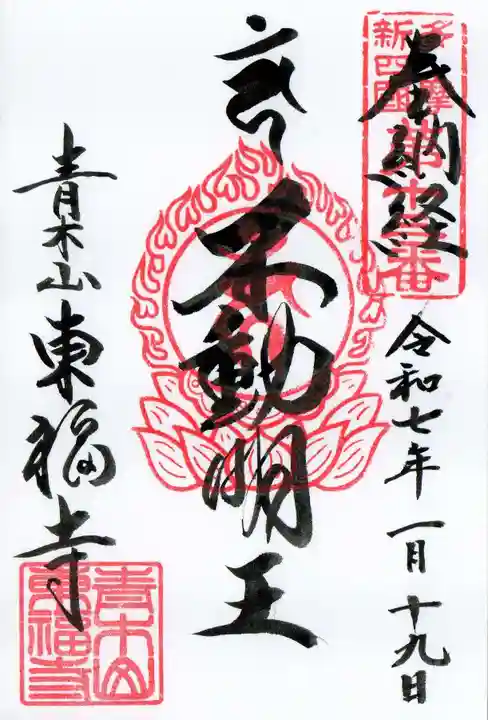 奉納経
多摩新四国
第十三番
令和七年 一月 十九日
不動明王
青木山東福寺
青木山
東福寺